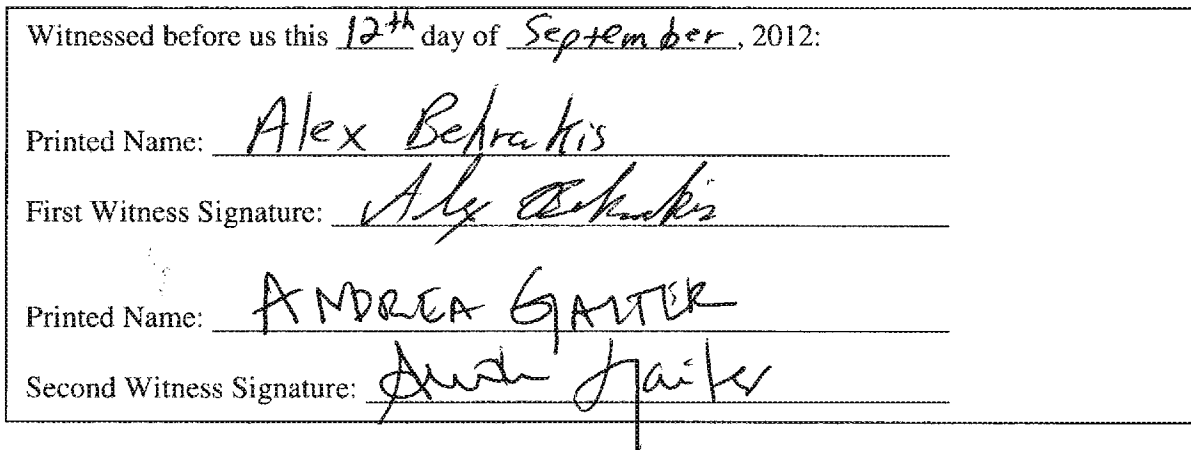 Witnessed before us this 12th day of September, 2012:
Printed Name: Alex Behrakis
First Witness Signature: Alex Behrakis
Printed Name: ANDREA GAITER
Second Witness Signature: Gaiter